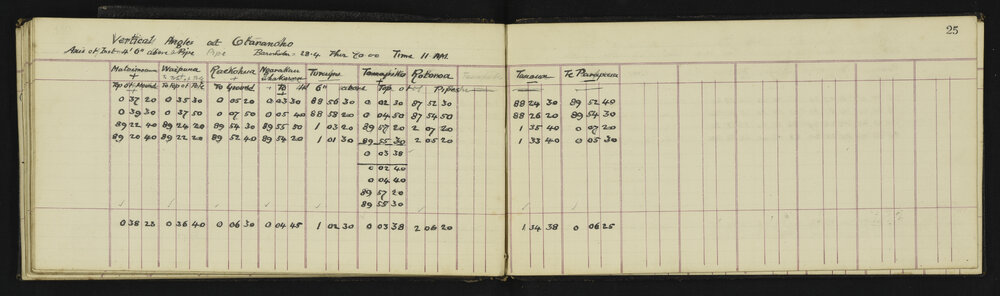 25
Vertical Angles at Otanandho
Axis of Inst. 4' 6" above Pipe Pipe Barometer - 28.4 Ther 70.00 Time 11 AM
Waipuna Raekohua Ngarakau Turuipe Tamapiko Rotoroa Tauwai Te Parapara
+ + +
Top of Mound To top of Pole To Ground To 4th 6" above Top of Pipes
0 37 20 0 35 30 0 05 20 0 03 30 88 56 30 0 02 30 87 52 30 88 24 30 89 52 40
0 39 30 0 37 50 0 07 50 0 05 40 88 58 20 0 04 50 87 54 50 88 26 20 89 54 30
89 22 40 89 24 20 89 54 30 89 55 50 1 03 20 89 57 20 2 07 20 1 35 40 0 07 20
89 20 40 89 22 20 89 52 40 89 54 20 1 01 30 89 55 30 2 05 20 1 33 40 0 05 30
0 03 38
0 02 40
0 04 40
89 57 20
89 55 30
0 38 23 0 36 40 0 06 30 0 04 45 1 02 30 0 03 38 2 06 20 1 34 38 0 06 25